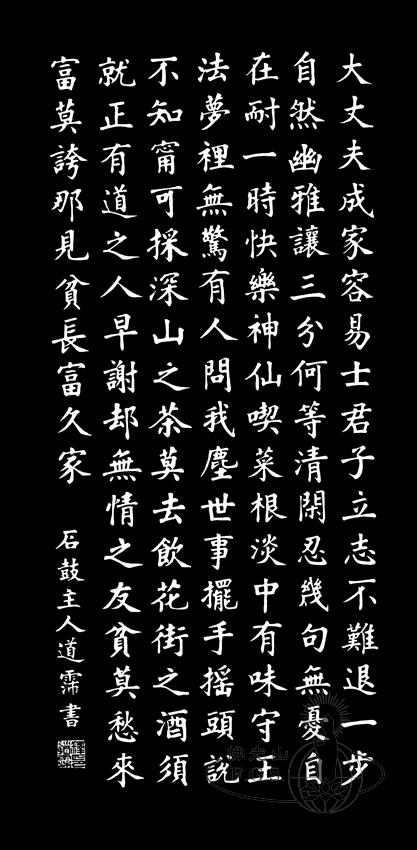 大丈夫成家容易士君子立志不難退一步
自然幽雅讓三分何等清閑忍幾句無憂自
在耐一時快樂神仙喫菜根淡中有味守王
法夢裡無驚有人問我塵世事擺手摇頭説
不知甯可採深山之茶莫去飲花街之酒須
就正有道之人早謝却無情之友貧莫愁來
富莫誇那見貧長富久家
石鼓主人道霈書
佛光山